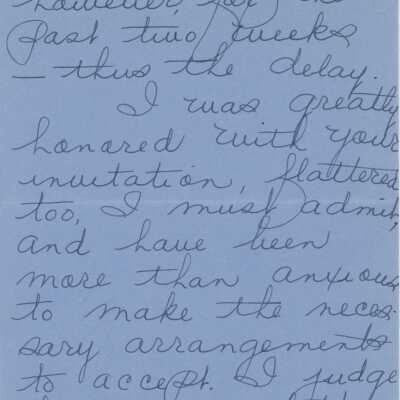 however, for the
past two weeks
— thus the delay.
I was greatly
honored with your
invitation, flattered
too, I must admit,
and have been
more than anxious
to make the neces-
sary arrangements
to accept. I judge